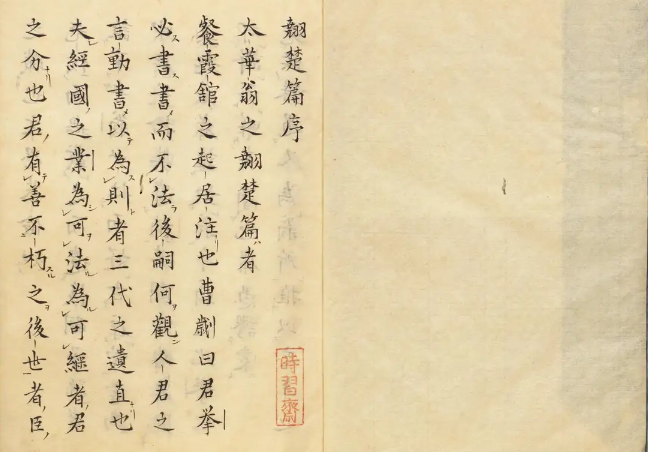 翹楚篇序
時習齋
太華翁之翹楚篇者
餐霞館之起居注也曹劌曰君挙
必書書而不法後嗣何觀人君之
言動書以為則者三代之遺直也
夫經國之業為可法為可經者君
之分也君有善不朽之後世者臣